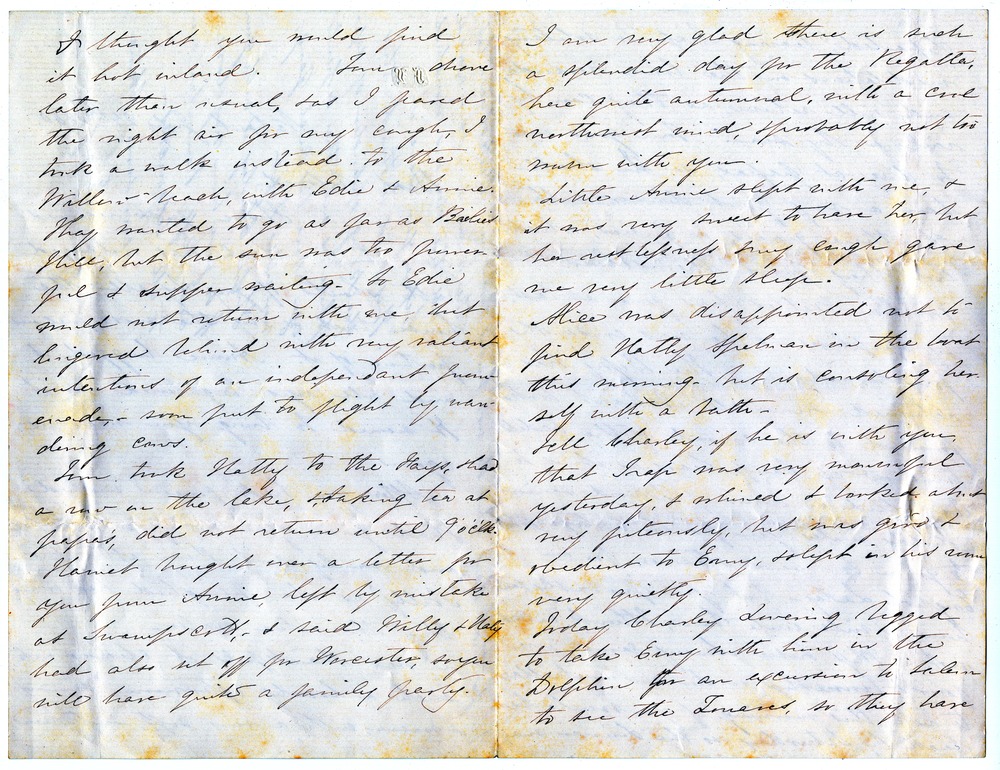 I thought you would find
it hot inland. Tom drove
later than usual, & as I feared
the night air for my cough, I
took a walk instead to the
Willow road, with Edie & Annie.
They wanted to go as far as
Hill, but the sun was too power-
ful & supper waiting. So Edie
would not return with me, but
lingered behind with very valiant
intentions of an independant prom-
enade, - soon put to flight by wan-
dering cows.
Tom took Hatty to the Hays, & had
a row on the lake, & taking tea at
papas, did not return until 9 o'clk.
Harriet brought over a letter for
you from Annie, left by mistake
at Swampscott, & said Willy & Katy
had also set off for Worcester, so you
will have quite a family party.
I am very glad there is such
a splendid day for the Regatta,
here quite autumnal, with a cool
northwest wind, & probably not too
warm with you.
Little Annie slept with me, &
it was very sweet to have her, but
her restlessness & my cough, gave
me very little sleep.
Alice was disappointed not to
find Hatty Spelman in the boat
this morning - but is consoling her
self with a bath -
Tell Charley, if he is with you,
that Trap was very mournful
yesterday, & whined & looked about
very piteously, but was good &
obedient to Emy, & slept in his room
very quietly.
Today Charley Lovering begged
to take Emy with him in the
Dolphin for an excursion to Salem
to see the Zouaves, so they have